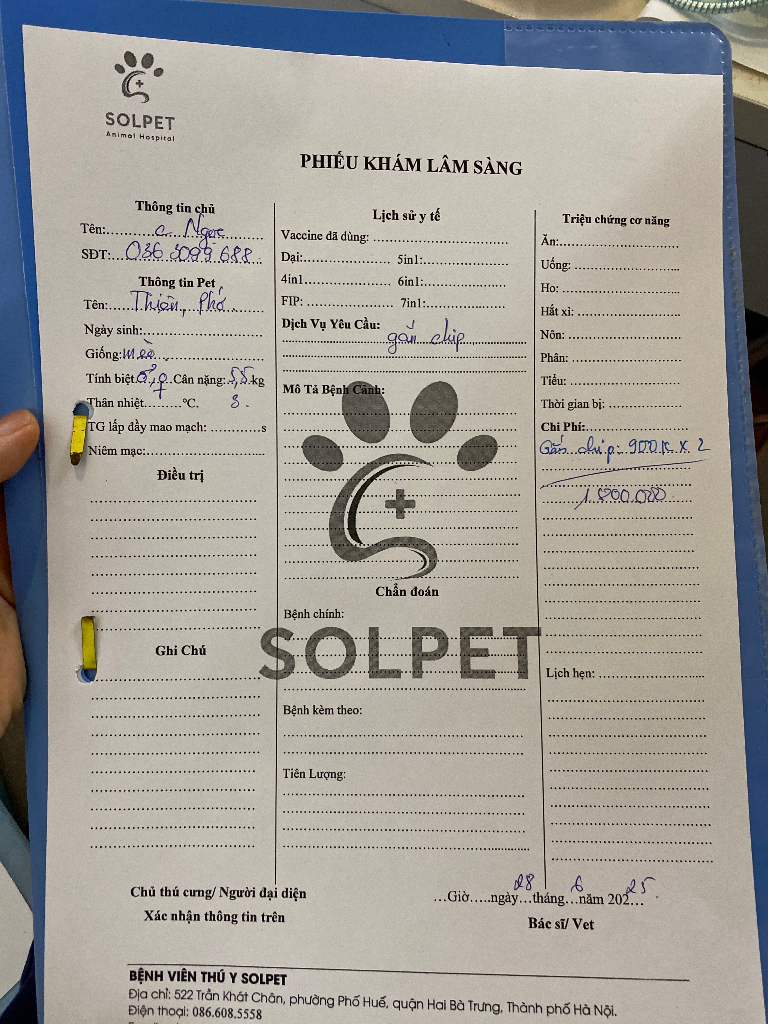 SOLPET
Animal Hospital
PHIẾU KHÁM LÂM SÀNG
Thông tin chủ
Tên: c. Ngọc
SĐT: 036 3099 688
Thông tin Pet
Tên: Thiên, Phố
Ngày sinh:
Giống: mèo
Tính biệt ♂, ♀ Cân nặng: 5,5 kg
Thân nhiệt °C. 3.
TG lấp đầy mao mạch: s
Niêm mạc:
Điều trị
Ghi Chú
Lịch sử y tế
Vaccine đã dùng:
Dại: 5in1:
4in1 6in1:
FIP: 7in1:
Dịch Vụ Yêu Cầu:
gắn chip
Mô Tả Bệnh Cảnh:
Chẩn đoán
Bệnh chính:
SOLPET
Bệnh kèm theo:
Tiên Lượng:
Triệu chứng cơ năng
Ăn:
Uống:
Ho:
Hắt xì:
Nôn:
Phân:
Tiểu:
Thời gian bị:
Chi Phí:
Gắn chip: 900K x 2
1.800.000
Lịch hẹn:
Chủ thú cưng/ Người đại diện
Xác nhận thông tin trên
...Giờ.....ngày 28 tháng 6 năm 2025
Bác sĩ/ Vet
BỆNH VIÊN THÚ Y SOLPET
Địa chỉ: 522 Trần Khát Chân, phường Phố Huế, quận Hai Bà Trưng, Thành phố Hà Nội.
Điện thoại: 086.608.5558